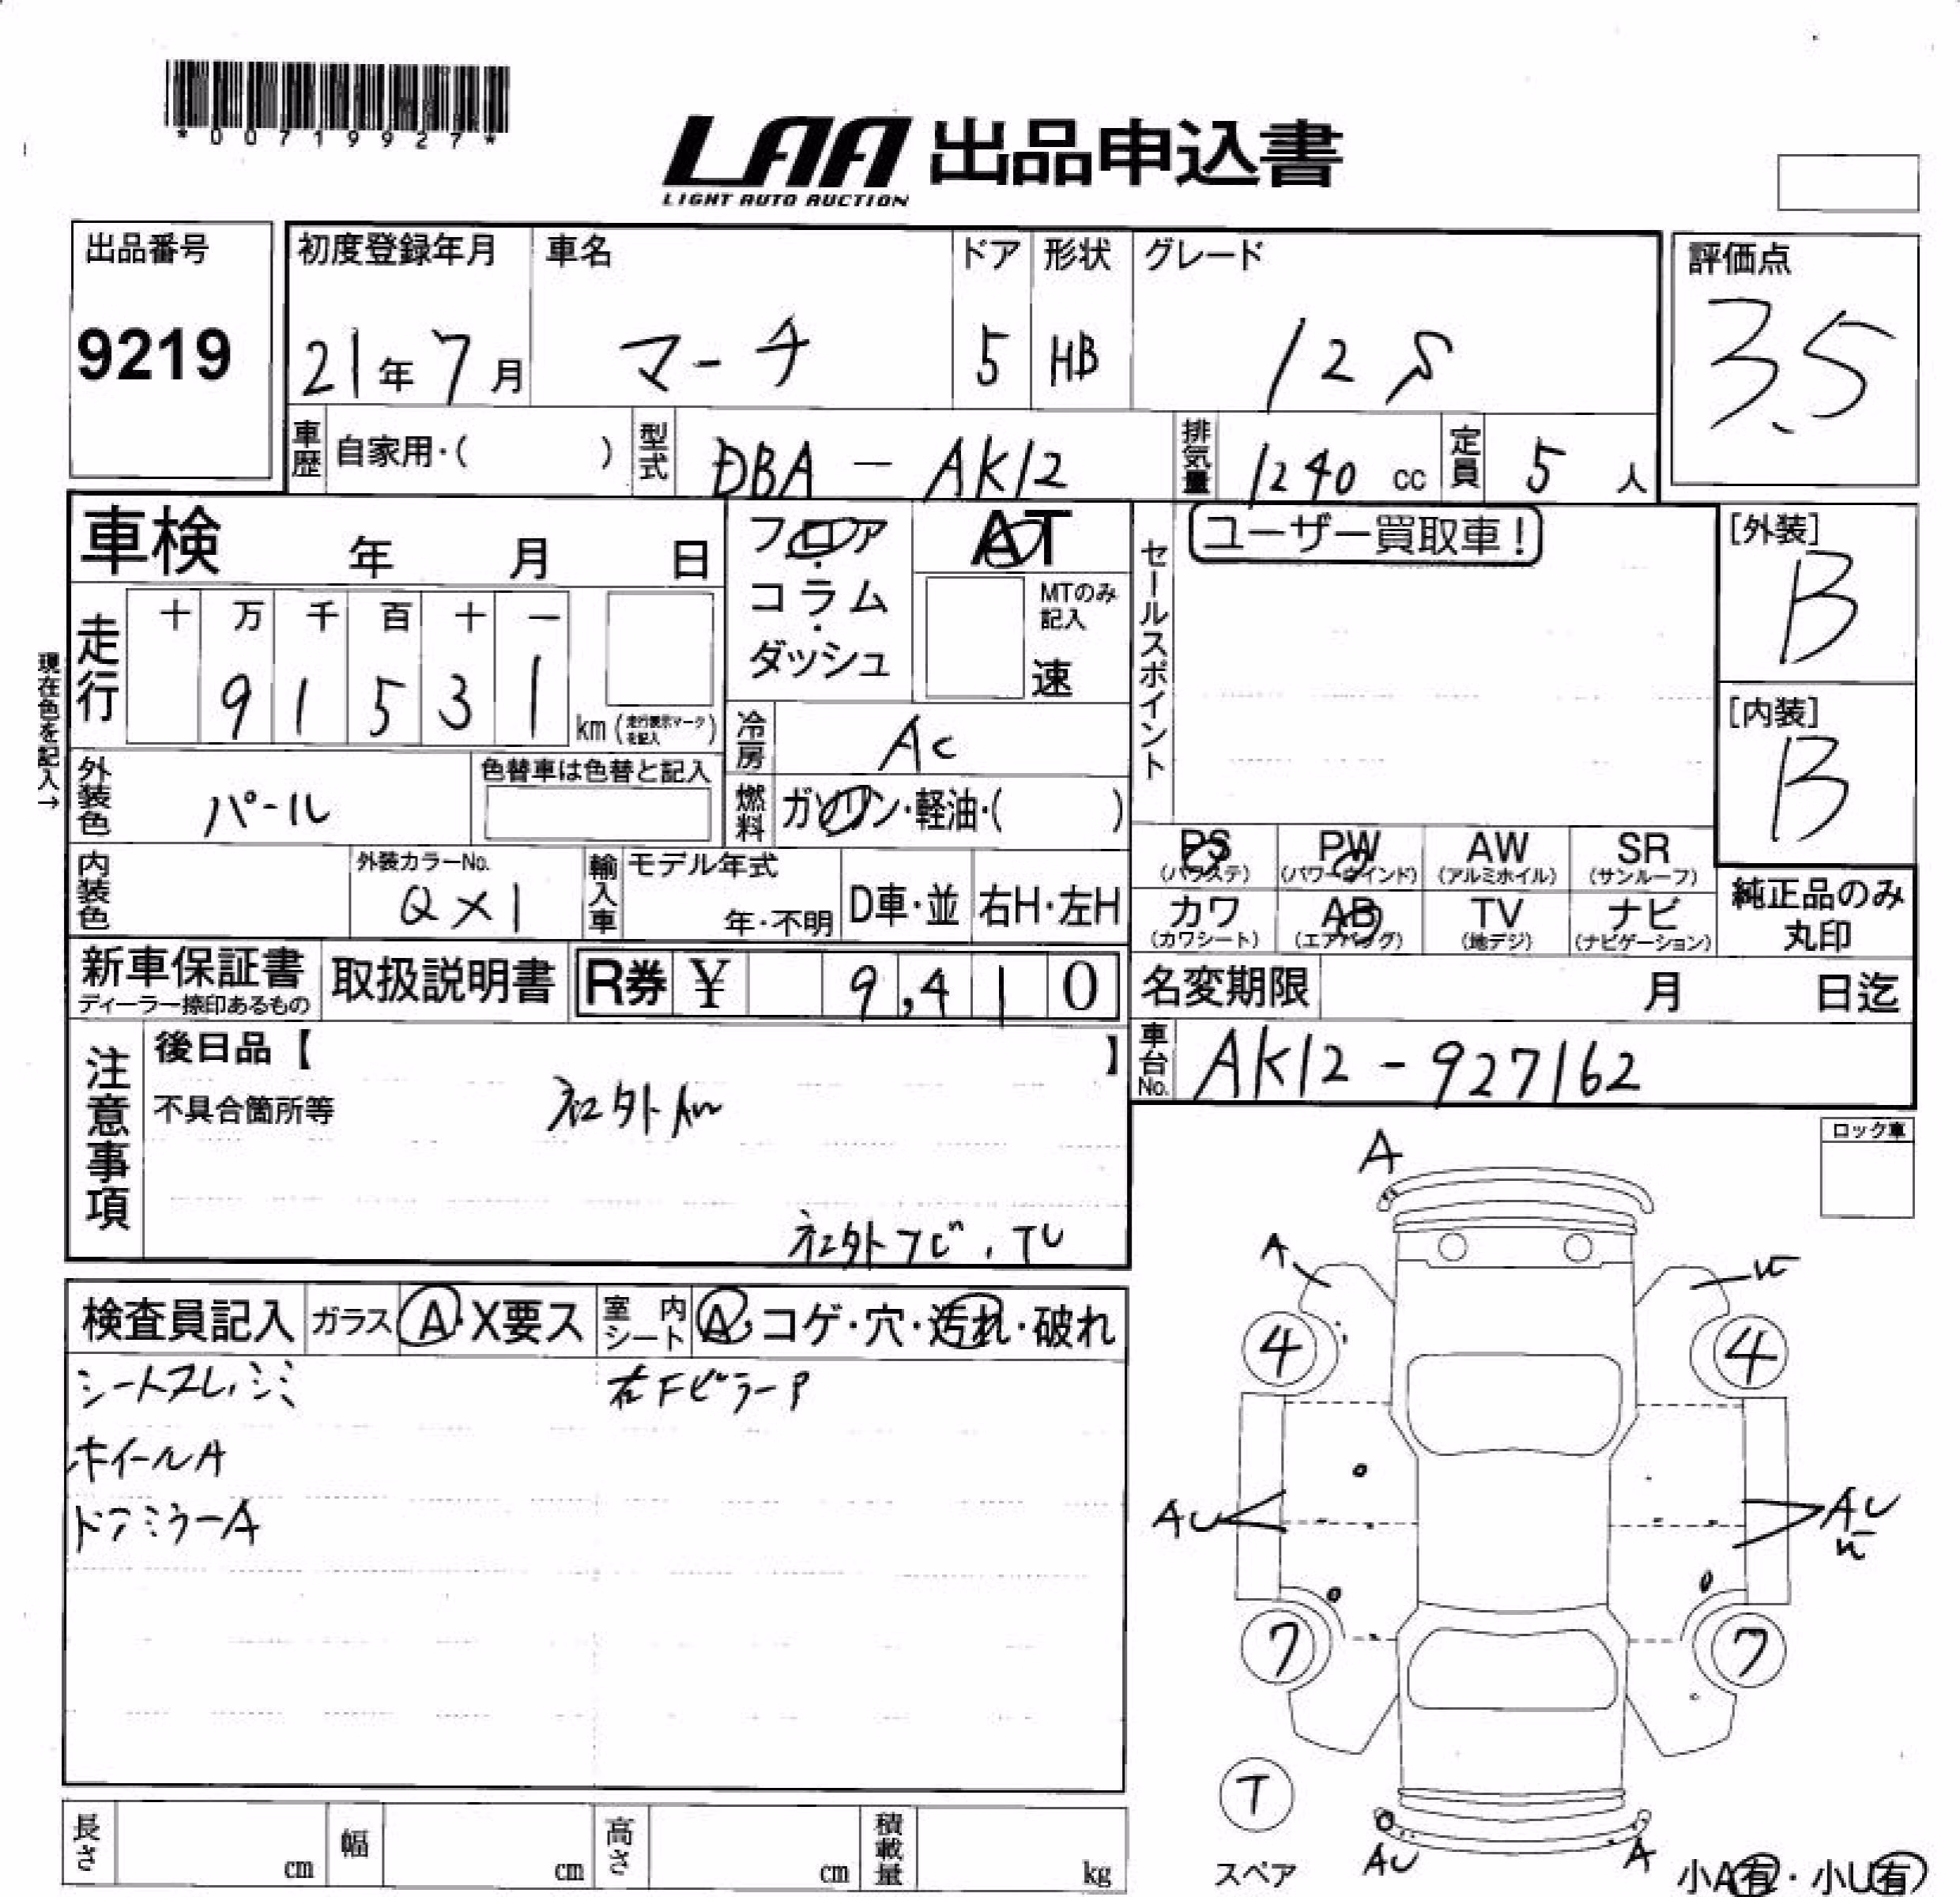 *00719927*
LAA 出品申込書
LIGHT AUTO AUCTION
出品番号 初度登録年月 車名 ドア 形状 グレード 評価点
9219 21年 7月 マーチ 5 HB 12S 3.5
車歴 自家用・( ) 型式 DBA - AK12 排気量 1240 cc 定員 5 人
車検 年 月 日 フロア AT セールスポイント ユーザー買取車! [外装]
B
コラム MTのみ記入
ダッシュ 速
走行 十 万 千 百 十 一
9 1 5 3 1 km (走行表示マークを記入)
[内装]
B
現在色を記入→
冷房 AC
外装色 パール 色替車は色替と記入 燃料 ガソリン・軽油・( )
PS PW AW SR
(パワステ) (パワーウインド) (アルミホイル) (サンルーフ)
内装色 外装カラーNo. QX1 輸入車 モデル年式 年・不明 D車・並 右H・左H
カワ AB TV ナビ 純正品のみ
(カワシート) (エアバッグ) (地デジ) (ナビゲーション) 丸印
新車保証書 取扱説明書 R券 ¥ 9,410 名変期限 月 日迄
ディーラー捺印あるもの
注意事項 後日品【 】 車台No. AK12-927162
不具合箇所等 社外AW
ロック車
社外ナビ、TV
検査員記入 ガラス A・X要ス 室内シート A・コゲ・穴・汚れ・破れ
シートスレ、シミ 右FピラーP
ホイールA
ドアミラーA
A
A
4 4
AU AU
7 7
T
スペア AU A 小A有・小U有
長さ cm 幅 cm 高さ cm 積載量 kg